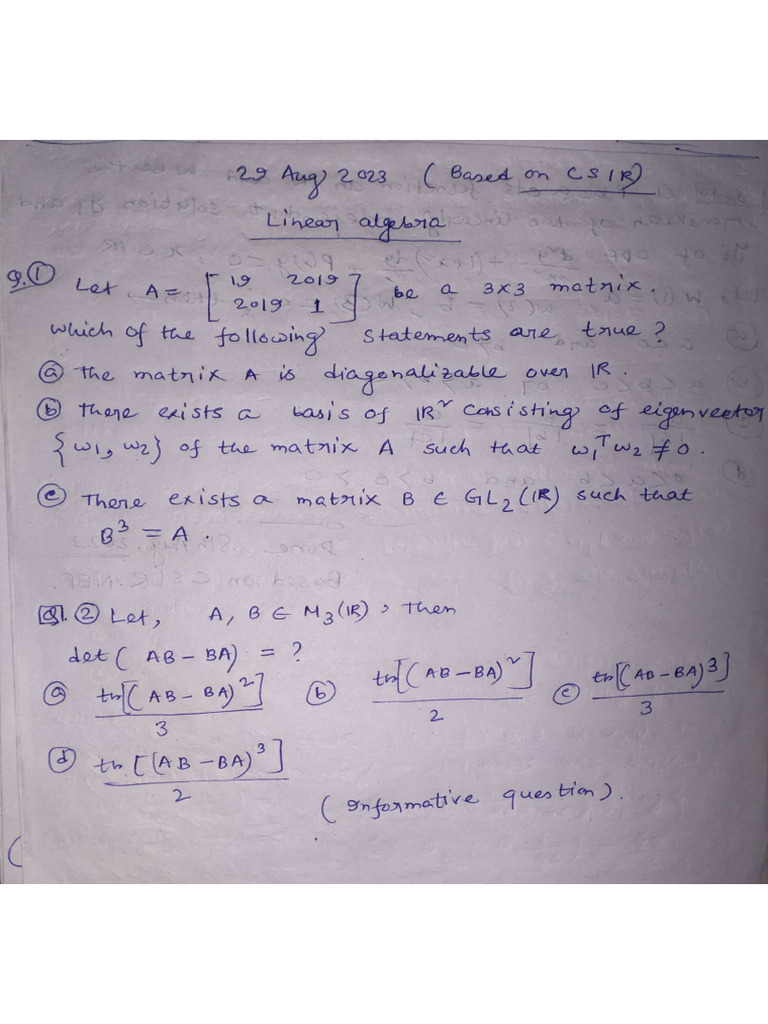 29 Aug 2023 (Based on CSIR)
Linear algebra
Q.① Let A = [19 2019
2019 1] be a 3x3 matrix.
which of the following statements are true?
ⓐ The matrix A is diagonalizable over IR.
ⓑ There exists a basis of IR² consisting of eigenvector
{w₁, w₂} of the matrix A such that w₁ᵀw₂ ≠ 0.
ⓒ There exists a matrix B ∈ GL₂(IR) such that
B³ = A.
Q. ② Let, A, B ∈ M₃(IR), then
det(AB - BA) = ?
ⓐ tr[(AB - BA)²]/3 ⓑ tr[(AB - BA)²]/2 ⓒ tr[(AB - BA)³]/3
ⓓ tr[(AB - BA)³]/2
(Informative question).